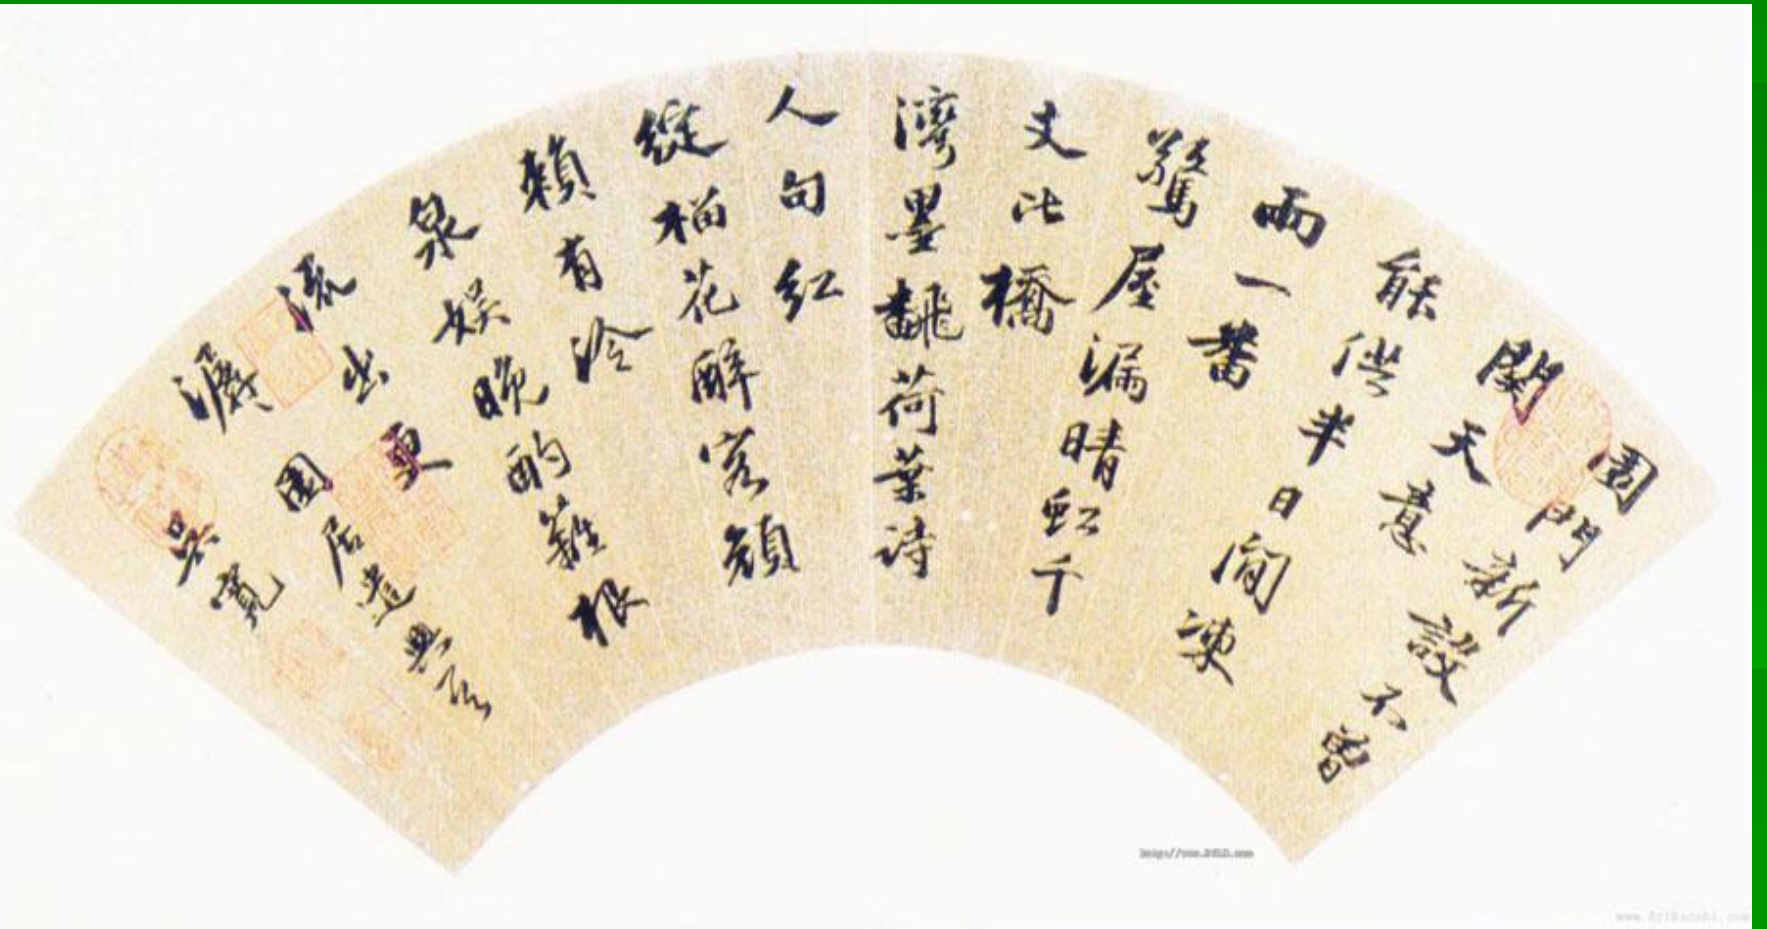 園門新設不曾
關天意
能供半日閒涷
雨一番
驚屋漏晴虹千
丈比橋
灣墨翻荷葉詩
人句紅
綻榴花醉客顏
賴有冷
泉娛晚酌籬根
流出更
園居遣興
吳寬